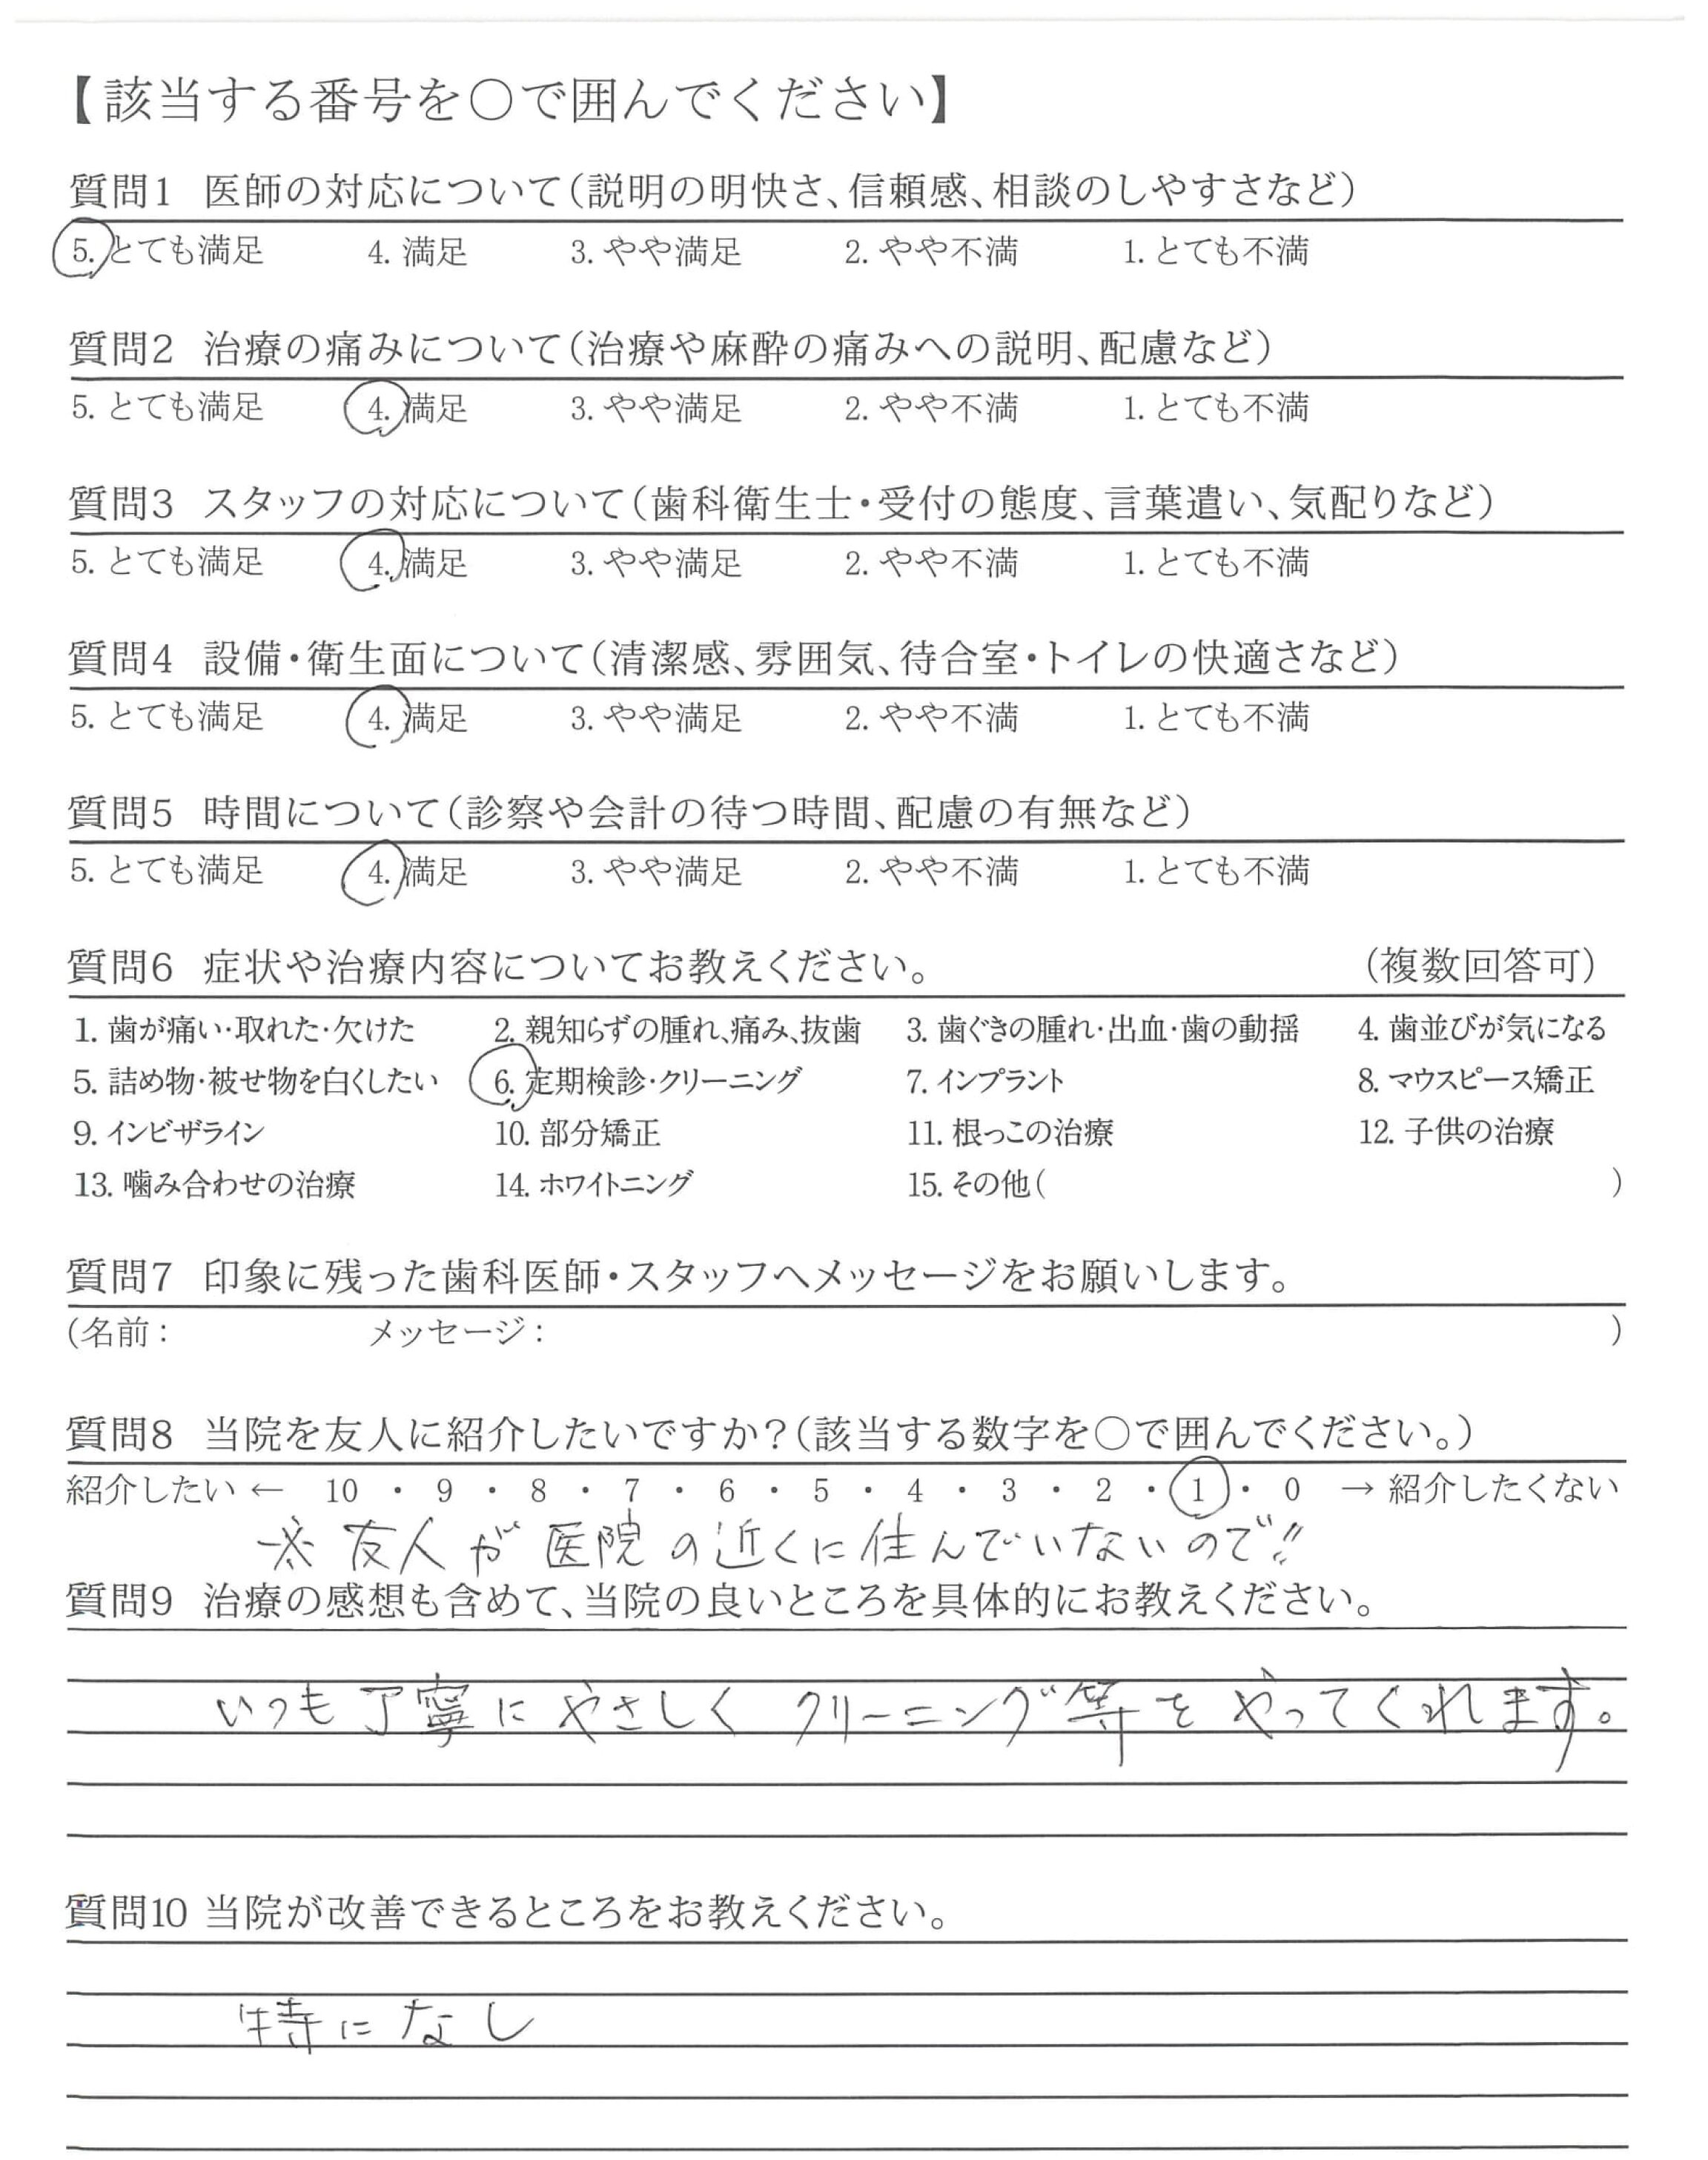 【該当する番号を○で囲んでください】
質問1 医師の対応について(説明の明快さ、信頼感、相談のしやすさなど)
5. とても満足 4. 満足 3. やや満足 2. やや不満 1. とても不満
質問2 治療の痛みについて(治療や麻酔の痛みへの説明、配慮など)
5. とても満足 4. 満足 3. やや満足 2. やや不満 1. とても不満
質問3 スタッフの対応について(歯科衛生士・受付の態度、言葉遣い、気配りなど)
5. とても満足 4. 満足 3. やや満足 2. やや不満 1. とても不満
質問4 設備・衛生面について(清潔感、雰囲気、待合室・トイレの快適さなど)
5. とても満足 4. 満足 3. やや満足 2. やや不満 1. とても不満
質問5 時間について(診察や会計の待つ時間、配慮の有無など)
5. とても満足 4. 満足 3. やや満足 2. やや不満 1. とても不満
質問6 症状や治療内容についてお教えください。 (複数回答可)
1. 歯が痛い・取れた・欠けた 2. 親知らずの腫れ、痛み、抜歯 3. 歯ぐきの腫れ・出血・歯の動揺 4. 歯並びが気になる
5. 詰め物・被せ物を白くしたい 6. 定期検診・クリーニング 7. インプラント 8. マウスピース矯正
9. インビザライン 10. 部分矯正 11. 根っこの治療 12. 子供の治療
13. 噛み合わせの治療 14. ホワイトニング 15. その他( )
質問7 印象に残った歯科医師・スタッフへメッセージをお願いします。
(名前: メッセージ: )
質問8 当院を友人に紹介したいですか?(該当する数字を○で囲んでください。)
紹介したい ← 10 ・ 9 ・ 8 ・ 7 ・ 6 ・ 5 ・ 4 ・ 3 ・ 2 ・ 1 ・ 0 → 紹介したくない
※ 友人が医院の近くに住んでいないので!!
質問9 治療の感想も含めて、当院の良いところを具体的にお教えください。
いつも丁寧にやさしくクリーニング等をやってくれます。
質問10 当院が改善できるところをお教えください。
特になし